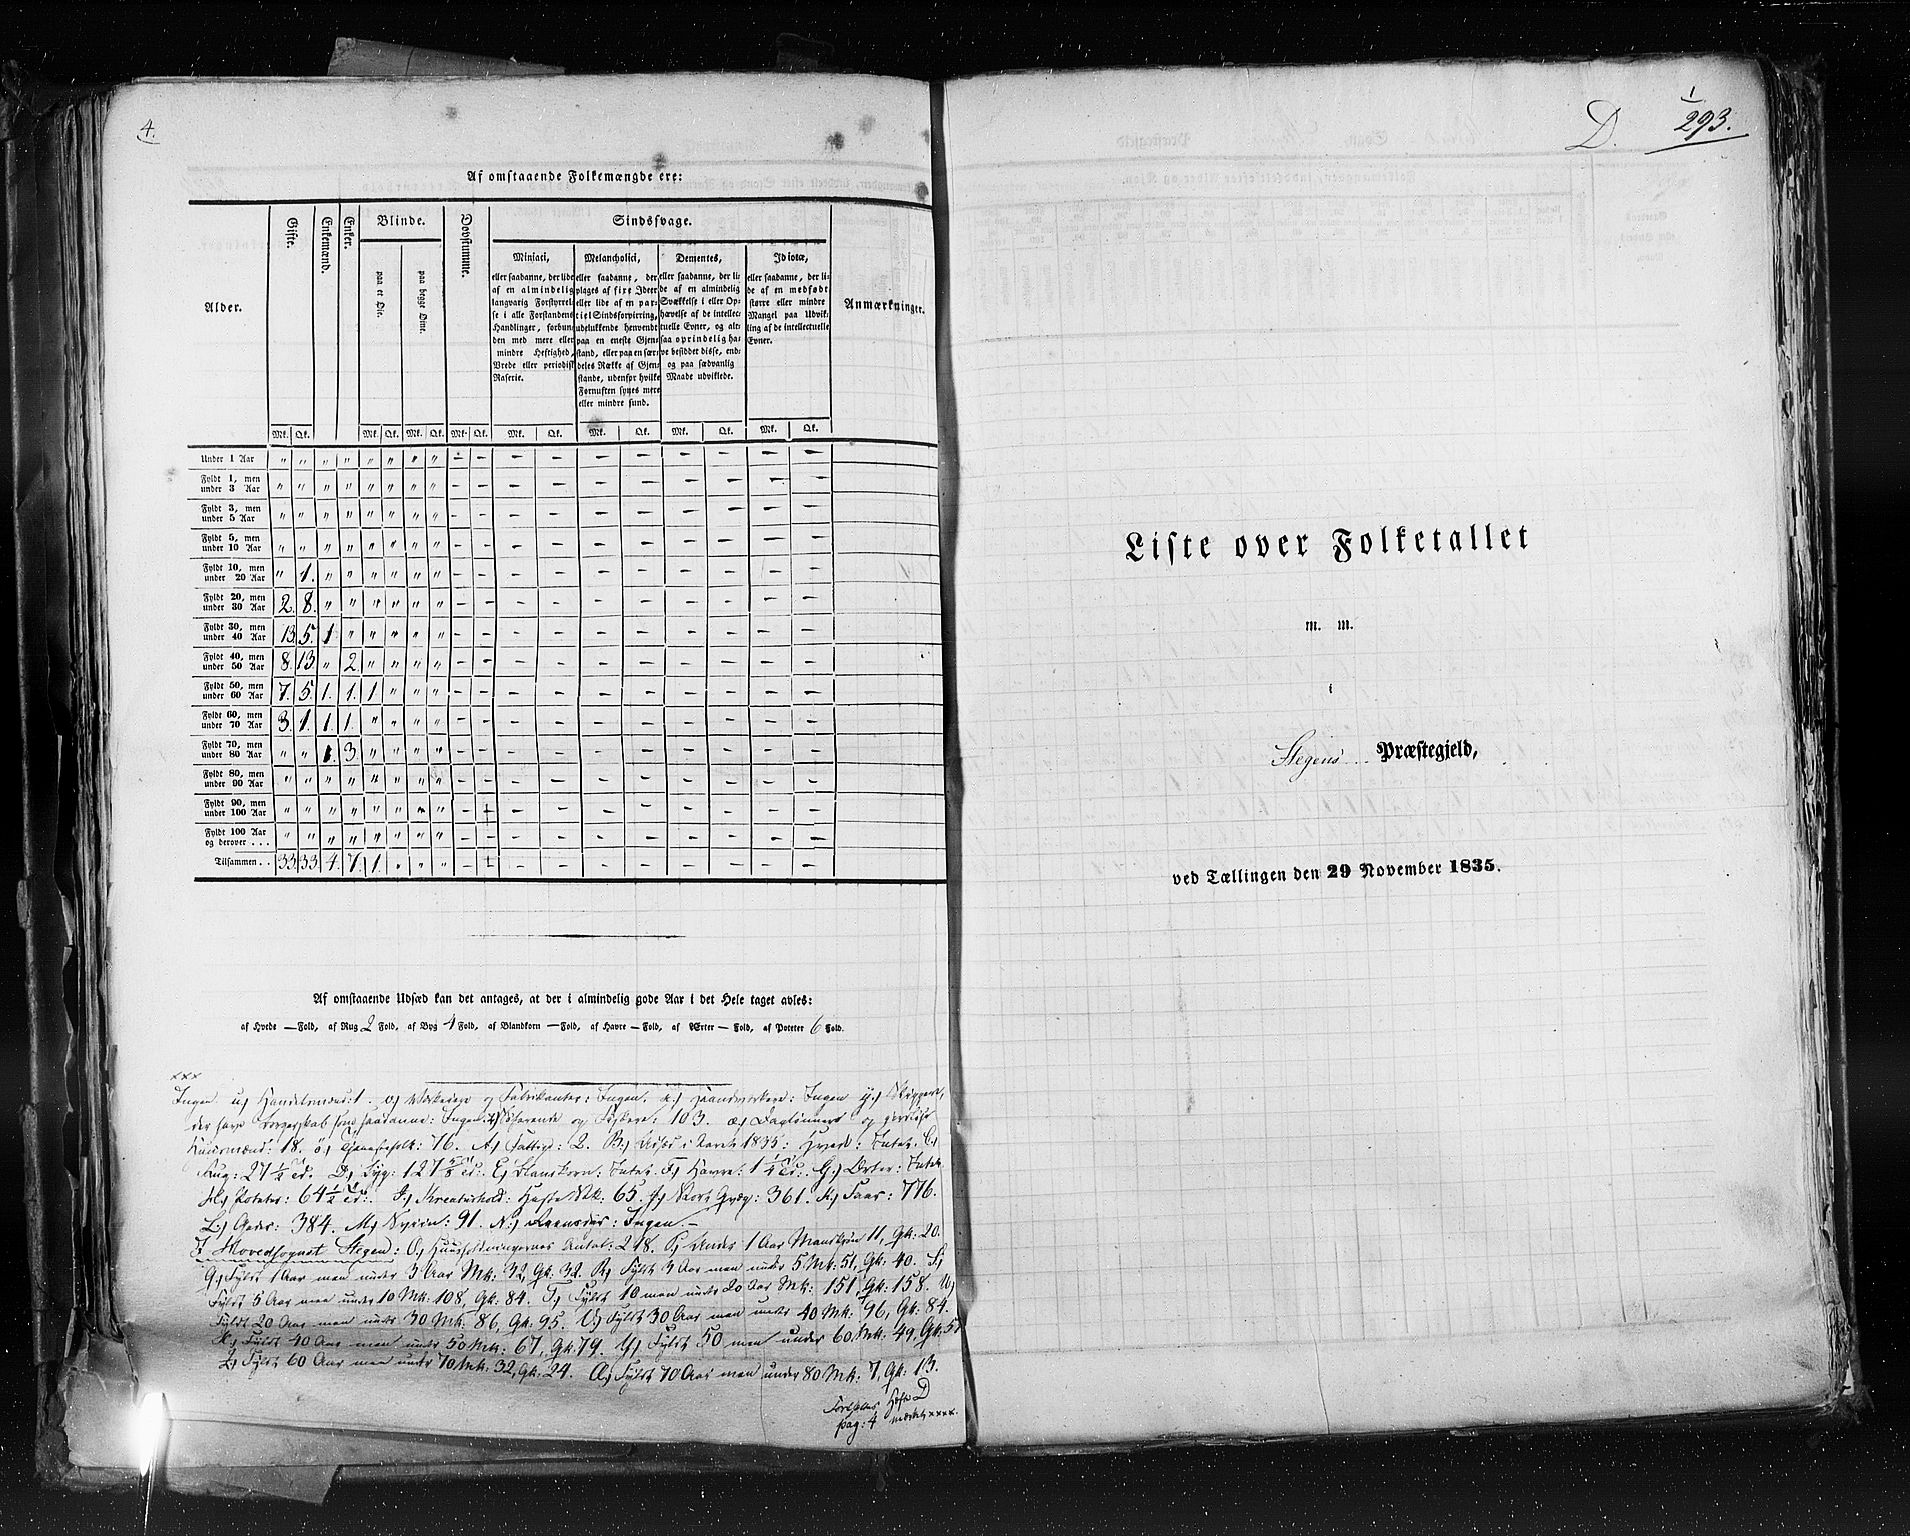 4.
Af omstaaende Folkemængde ere:
Alder. Gifte. Enkemænd. Enker. Blinde. Døvstumme. Sindssvage. Anmærkninger.
paa et Øie. paa begge Øine.
Maniaci, Melancholici, Dementes, Idiotæ,
eller saadanne, der lide af en almindelig langvarig Forstyrrelse i alle Forstandens Handlinger, forbunden med mere eller mindre Heftighed, Vrede eller periodisk Raserie.
eller saadanne, der plages af fixe Ideer eller lide af en partiel Sindsforvirring, udelukkende henvendt paa en eneste Gjenstand, eller paa en særdeles Række af Gjenstande, udenfor hvilke Fornuften synes mere eller mindre sund.
eller saadanne, der lide af en almindelig Svækkelse i eller Ophævelse af de intellectuelle Evner, og altsaa oprindelig have besiddet disse, endog paa sædvanlig Maade udviklede.
eller saadanne, der lide af en medfødt større eller mindre Mangel paa Udvikling af de intellectuelle Evner.
Mk. Qk. Mk. Qk. Mk. Qk. Mk. Qk. Mk. Qk. Mk. Qk. Mk. Qk. Mk. Qk.
Under 1 Aar " " " " " " " " - - - - - - - - - -
Fyldt 1, men under 3 Aar " " " " " " " " - - - - - - - - - -
Fyldt 3, men under 5 Aar " " " " " " " " - - - - - - - - - -
Fyldt 5, men under 10 Aar " " " " " " " " - - - - - - - - - -
Fyldt 10, men under 20 Aar " 1. " " " " " " - - - - - - - - - -
Fyldt 20, men under 30 Aar 2. 8. " " " " " " - - - - - - - - - -
Fyldt 30, men under 40 Aar 13 5. 1 " " " " " - - - - - - - - - -
Fyldt 40, men under 50 Aar 8. 13. " 2 " " " " - - - - - - - - - -
Fyldt 50, men under 60 Aar 7. 5. 1. 1. 1 " " " - - - - - - - - - -
Fyldt 60, men under 70 Aar 3. 1. 1. 1. " " " " - - - - - - - - - -
Fyldt 70, men under 80 Aar " " 1. 3 " " " " - - - - - - - - - -
Fyldt 80, men under 90 Aar " " " " " " " " - - - - - - - - - -
Fyldt 90, men under 100 Aar " " " " " " " " - - - - - - - - - -
Fyldt 100 Aar og derover . . . " " " " " " " " - - - - - - - - - -
Tilsammen . . 33. 33. 4. 7. 1. " " " - - - - - - - - - -
Af omstaaende Udsæd kan det antages, at der i almindelig gode Aar i det Hele taget avles:
af Hvede — Fold, af Rug 2 Fold, af Byg 4 Fold, af Blandkorn — Fold, af Havre — Fold, af Erter — Fold, af Poteter 6 Fold.
xxx
Ingen u) Handelsmænd: 1. v) Værkeiere og Fabrikanter: Ingen. x) Haandværkere: Ingen y) Skippere,
der have Borgerskab som saadanne: Ingen z) Søfarende og Fiskere: 103. æ) Daglønnere og jordløse
Huusmænd: 18. ø) Tjenestefolk: 76. A) Fattige: 2. B) Udsæd i Aaret 1835: Hvede: Intet. C)
Rug: 27 1/2 Td. D) Byg: 127 5/8 Td: E) Blandkorn: Intet. F) Havre: 1 1/4 Td: G) Erter: Intet
H) Poteter: 64 1/2 Td:. I) Kreaturhold: Heste Stk: 65. J) Stort Qvæg: 361. K) Faar: 776.
L) Geder: 384. M) Sviin: 91. N) Reensdyr: Ingen. —
I Hovedsognet Stegen: O) Huusholdningernes Antal: 218. P) Under 1 Aar Mandkjøn 11, Qk: 20.
Q) Fyldt 1 Aar men under 3 Aar Mk: 32, Qk. 32. R) Fyldt 3 Aar men under 5 Mk: 51, Qk: 40. S)
Fyldt 5 Aar men under 10 Mk: 108, Qk: 84. T) Fyldt 10 men under 20 Aar Mk: 151, Qk: 158. U)
Fyldt 20 Aar men under 30 Mk: 86, Qk: 95. V) Fyldt 30 Aar men under 40 Mk: 96, Qk: 84.
X) Fyldt 40 Aar men under 50 Mk: 67, Qk 79. Y) Fyldt 50 men under 60 Mk: 49, Qk: 51
Z) Fyldt 60 Aar men under 70 Mk: 32, Qk: 24. Æ) Fyldt 70 Aar men under 80 Mk: 7, Qk: 13.
Fortsættes Hefte D
pag: 4 mærket xxxx.
D. 1
293.
Liste over Folketallet
m. m.
i
Stegens Præstegjeld,
ved Tællingen den 29 November 1835.